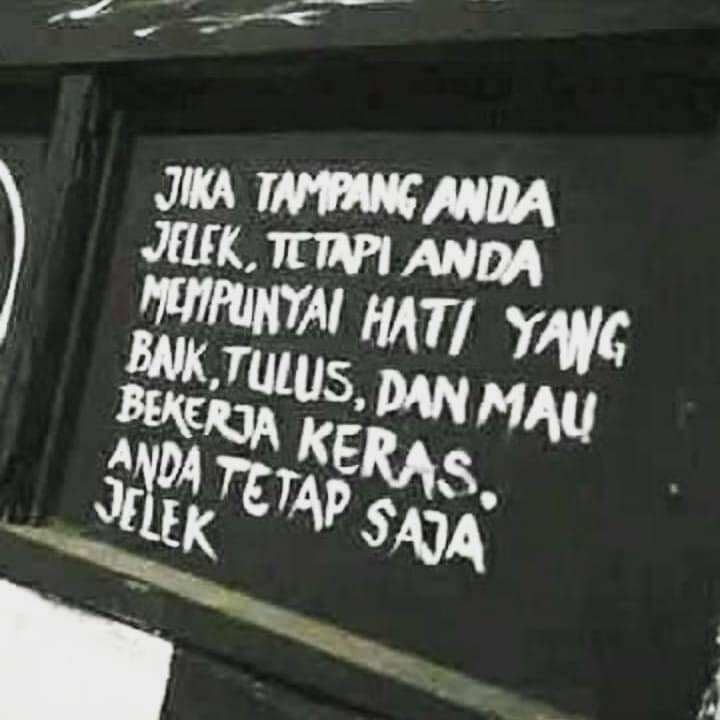 JIKA TAMPANG ANDA
JELEK, TETAPI ANDA
MEMPUNYAI HATI YANG
BAIK, TULUS, DAN MAU
BEKERJA KERAS.
ANDA TETAP SAJA
JELEK